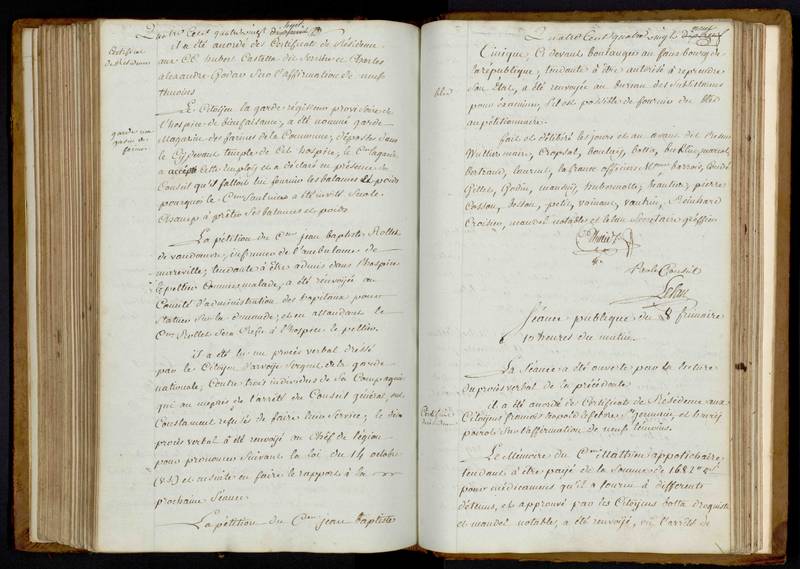 Quatre Cent quatre vingt sept
Certificat de Résidence
il a été acordé des Certificat de Résidence
aux CC hubert Castella de Serriere et Charles
alexandre Godar Sur l'affirmation de neuf
thmoins
garde magasin des farines
Le Citoyen la garde régisseur provisoire de
l'hospice de bienfaisance, a été nommé garde
Magazin des farines de la Commune, déposées dans
le Cydevant temple de Cet hospice, le Cen lagarde
a accepté Cette employ et a déclaré en présence du
Conseil qu'il falloit lui fournir les balances et poids
pourquoi le Cen Saulnier a été invité Sur le
Champ à prêter Ses balances et poids
La pétition du Cen jean baptiste Rollet
de vandoeuvre, infirmier de l'ambulance de
mireville, tendante à être admis dans l'hospice
lepelletier Comme malade, a été renvoyée au
Comité d'administration des hopitaux pour
Statuer Sur la demande, et en attendant le
Cen Rollet Sera Reçu à l'hospice le pelletier.
il a été lu un procès verbal dressé
par le Citoyen Sergent de la garde
nationale, Contre trois individus de Sa Compagnie
qui au mépris de l'arrêté du Conseil général, ont
Constament refusés de faire leur Service, le dit
procès verbal a été renvoyé au Chef de légion
pour prononcer Suivant la loi du 14 octobre
(v.s.) et ensuite en faire le rapport à la
prochaine Séance.
La pétition du Cen jean baptiste
Quatre Cent quatre vingt
Civique, Ci devant boulanger au faubourg de
la république, tendante à être autorisé à reprendre
Son Etat, a été renvoyée au bureau des Subsistances
bled
pour examiner, S'il est possible de fournir du bled
au pétitionnaire.
fait et délibéré les jours et an avant dit
Wulliermin, Crapsal, boulay, botta,
Bertrand, laurent, la france officiers Mpaux barrois,
Gillet, Godin, mandel, beaulieu, pierre
Cosson, bosson, petit, voinant, vautrin, Reinhard
Croisier, notables et Secretaire greffier
Par le Conseil
Séance publique du 8 frimaire
10 heures du matin.
La Séance a été ouverte par la lecture
du procès verbal de la précédente.
Certificat de résidence
il a été acordé des Certificats de Résidence aux
Citoyens françois leopold lefebvre, germain, et
Sur l'affirmation de neuf témoins.
Le Mémoire du Cen Matthieu appotichaire,
tendant à être payé de la Somme de
pour médicamens qu'il a fourni à differents
détenus, et approuvé par les Citoyens botta droguiste
et mandel notable, a été renvoyé, vû l'arrêté de